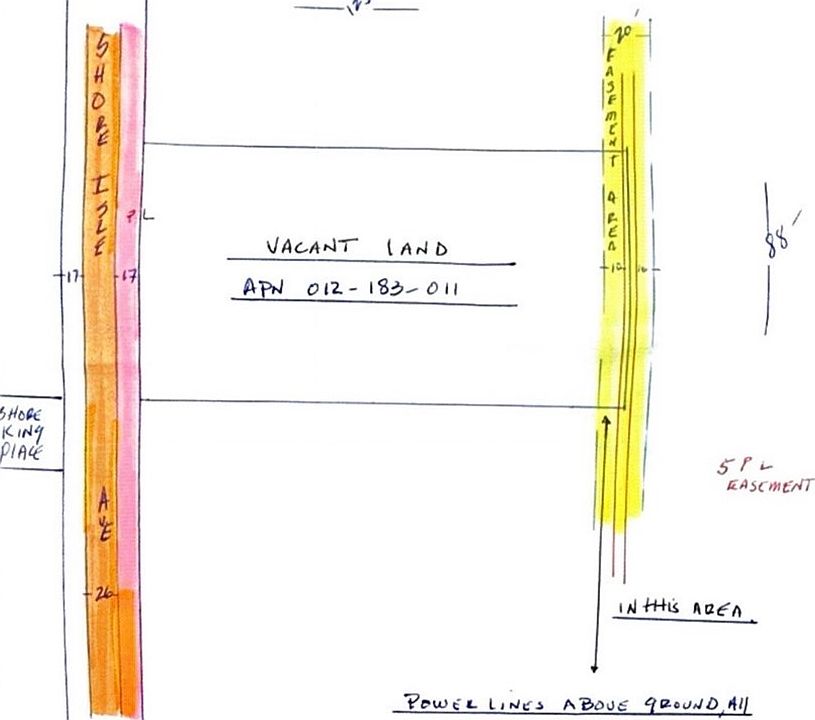 125
20'
SHORE ISLE
EASEMENT AREA
P L
VACANT LAND
88'
17 17
10 10
APN 012-183-011
SHORE
KING
PLACE
AVE
5 P L
EASEMENT
26
IN THIS AREA.
POWER LINES ABOVE GROUND, All